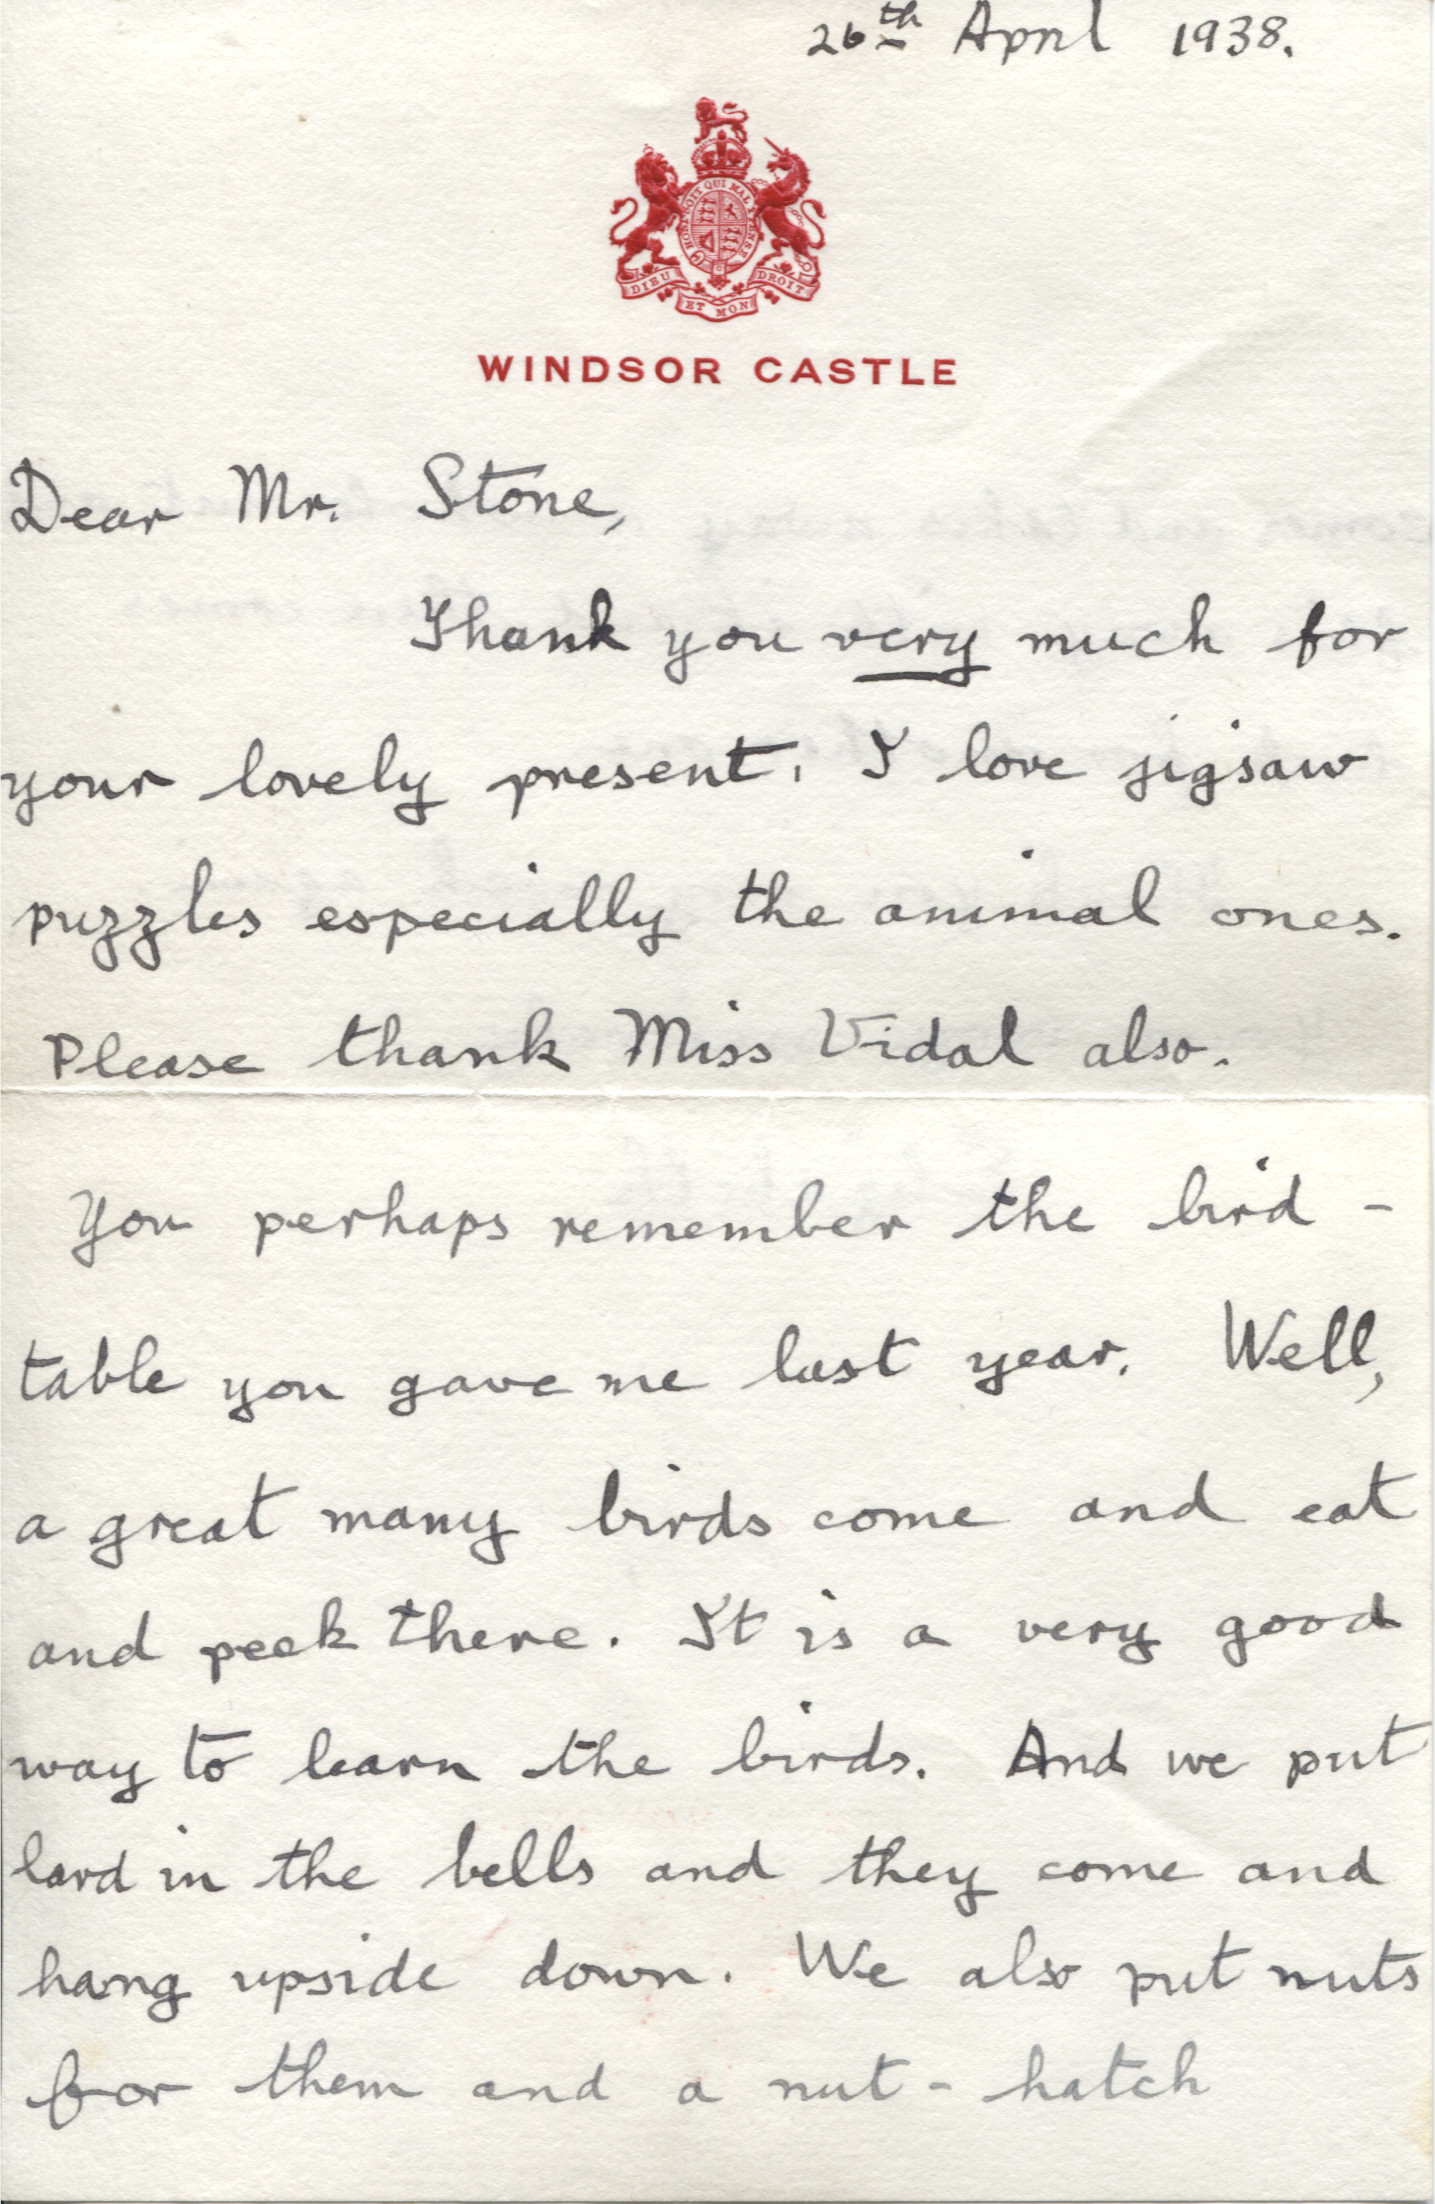 26th April 1938.
HONI SOIT QUI MAL Y PENSE
DIEU ET MON DROIT
WINDSOR CASTLE
Dear Mr. Stone,
Thank you very much for
your lovely present. I love jigsaw
puzzles especially the animal ones.
Please thank Miss Vidal also.
You perhaps remember the bird -
table you gave me last year. Well,
a great many birds come and eat
and peek there. It is a very good
way to learn the birds. And we put
lard in the bells and they come and
hang upside down. We also put nuts
for them and a nut - hatch